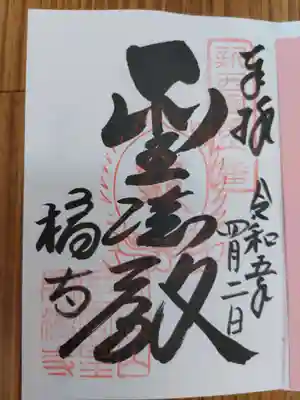 奉拝
令和五年
四月二日
聖徳殿
橘寺